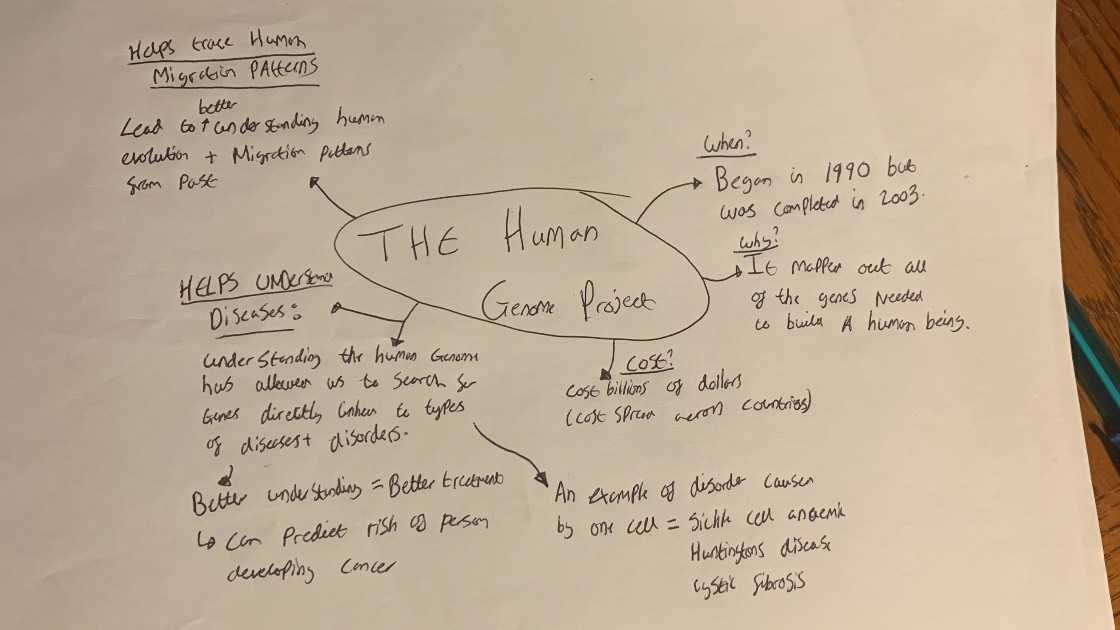 THE Human
Genome Project
Helps trace Human
Migration Patterns
better
Lead to ↑ understanding human
evolution + Migration patterns
from past
When?
Began in 1990 but
was completed in 2003.
Why?
It mapped out all
of the genes needed
to build A human being.
Cost?
Cost billions of dollars
(cost spread across countries)
HELPS UNDerstand
Diseases:
understanding the human Genome
has allowed us to search for
Genes directly linked to types
of diseases + disorders.
Better understanding = Better treatment
↳ Can Predict risk of person
developing cancer
An example of disorder caused
by one cell = Sickle cell anaemia
Huntingtons disease
cystic fibrosis